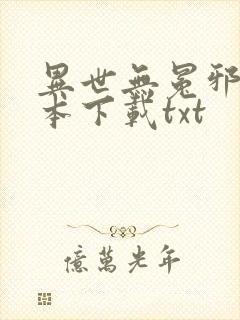 異世無冕邪
本下載txt
億萬光年